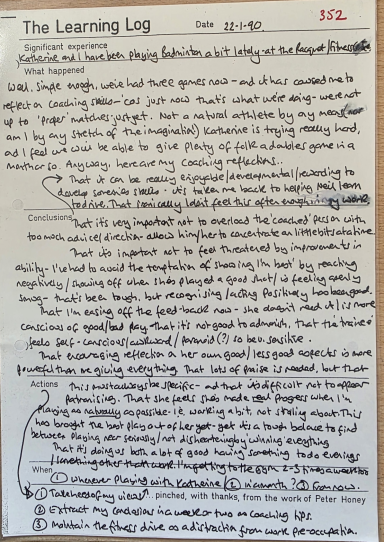 352
The Learning Log Date 22-1-90.
Significant experience
Katherine and I have been playing Badminton a bit lately - at the Racquet/Fitness
What happened
Well. Simple enough, we've had three games now - and it has caused me to
reflect on coaching skills - 'cos just now that's what we're doing - we're not
up to 'proper' matches just yet. Not a natural athlete by any means (nor
am I by any stretch of the imagination) Katherine is trying really hard,
and I feel we will be able to give plenty of folk a doubles game in a
month or so. Anyway, here are my coaching reflections..
That it can be really enjoyable/developmental/rewarding to
develop someones skills - it's taken me back to helping Neil learn
to drive. That ironically I don't feel this often enough in my work.
Conclusions That it's very important not to overload the 'coached' person with
too much advice/direction - allow him/her to concentrate on little bits at a time.
That it's important not to feel threatened by improvements in
ability - I've had to avoid the temptation of 'showing I'm best' by reacting
negatively / showing off when she's played a good shot / is feeling openly
smug - that's been tough, but recognising/acting positively has been good.
That I'm easing off the feedback now - she doesn't need it / is more
conscious of good/bad play - that it's not good to admonish, that the 'trainee'
feels self-conscious/awkward/paranoid(?) so be v. sensitive.
That encouraging reflection on her own good/less good aspects is more
powerful than me giving everything. That lots of praise is needed, but that
Actions this must always be specific - and that it's difficult not to appear
patronising. That she feels she's made real progress when I'm
playing as naturally as possible - i.e. working a bit, not strolling about. This
has brought the best play out of her yet - yet it's a tough balance to find
between playing near seriously/not disheartening by winning everything
That it's doing us both a lot of good having something to do evenings
/something other than work. I'm getting to the gym 2-3 times a week too
When ① Whenever playing with Katherine ② in a month? ③ From now.
① Take heed of my views ↑ . pinched, with thanks, from the work of Peter Honey
② Extract my conclusions in a week or two as coaching tips.
③ Maintain the fitness drive as a distraction from work pre-occupation.